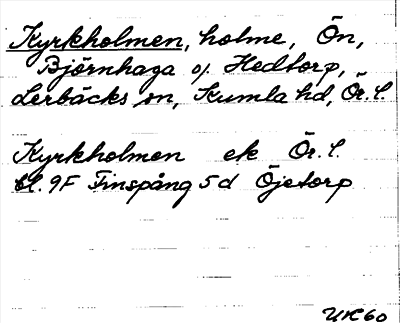 Kyrkholmen, holme, Ön,
Björnhaga o. Hedtorp,
Lerbäcks sn, Kumla hd, Ör. l.
Kyrkholmen ek Ör. l.
bl. 9F Finspång 5 d Öjetorp
UK 60